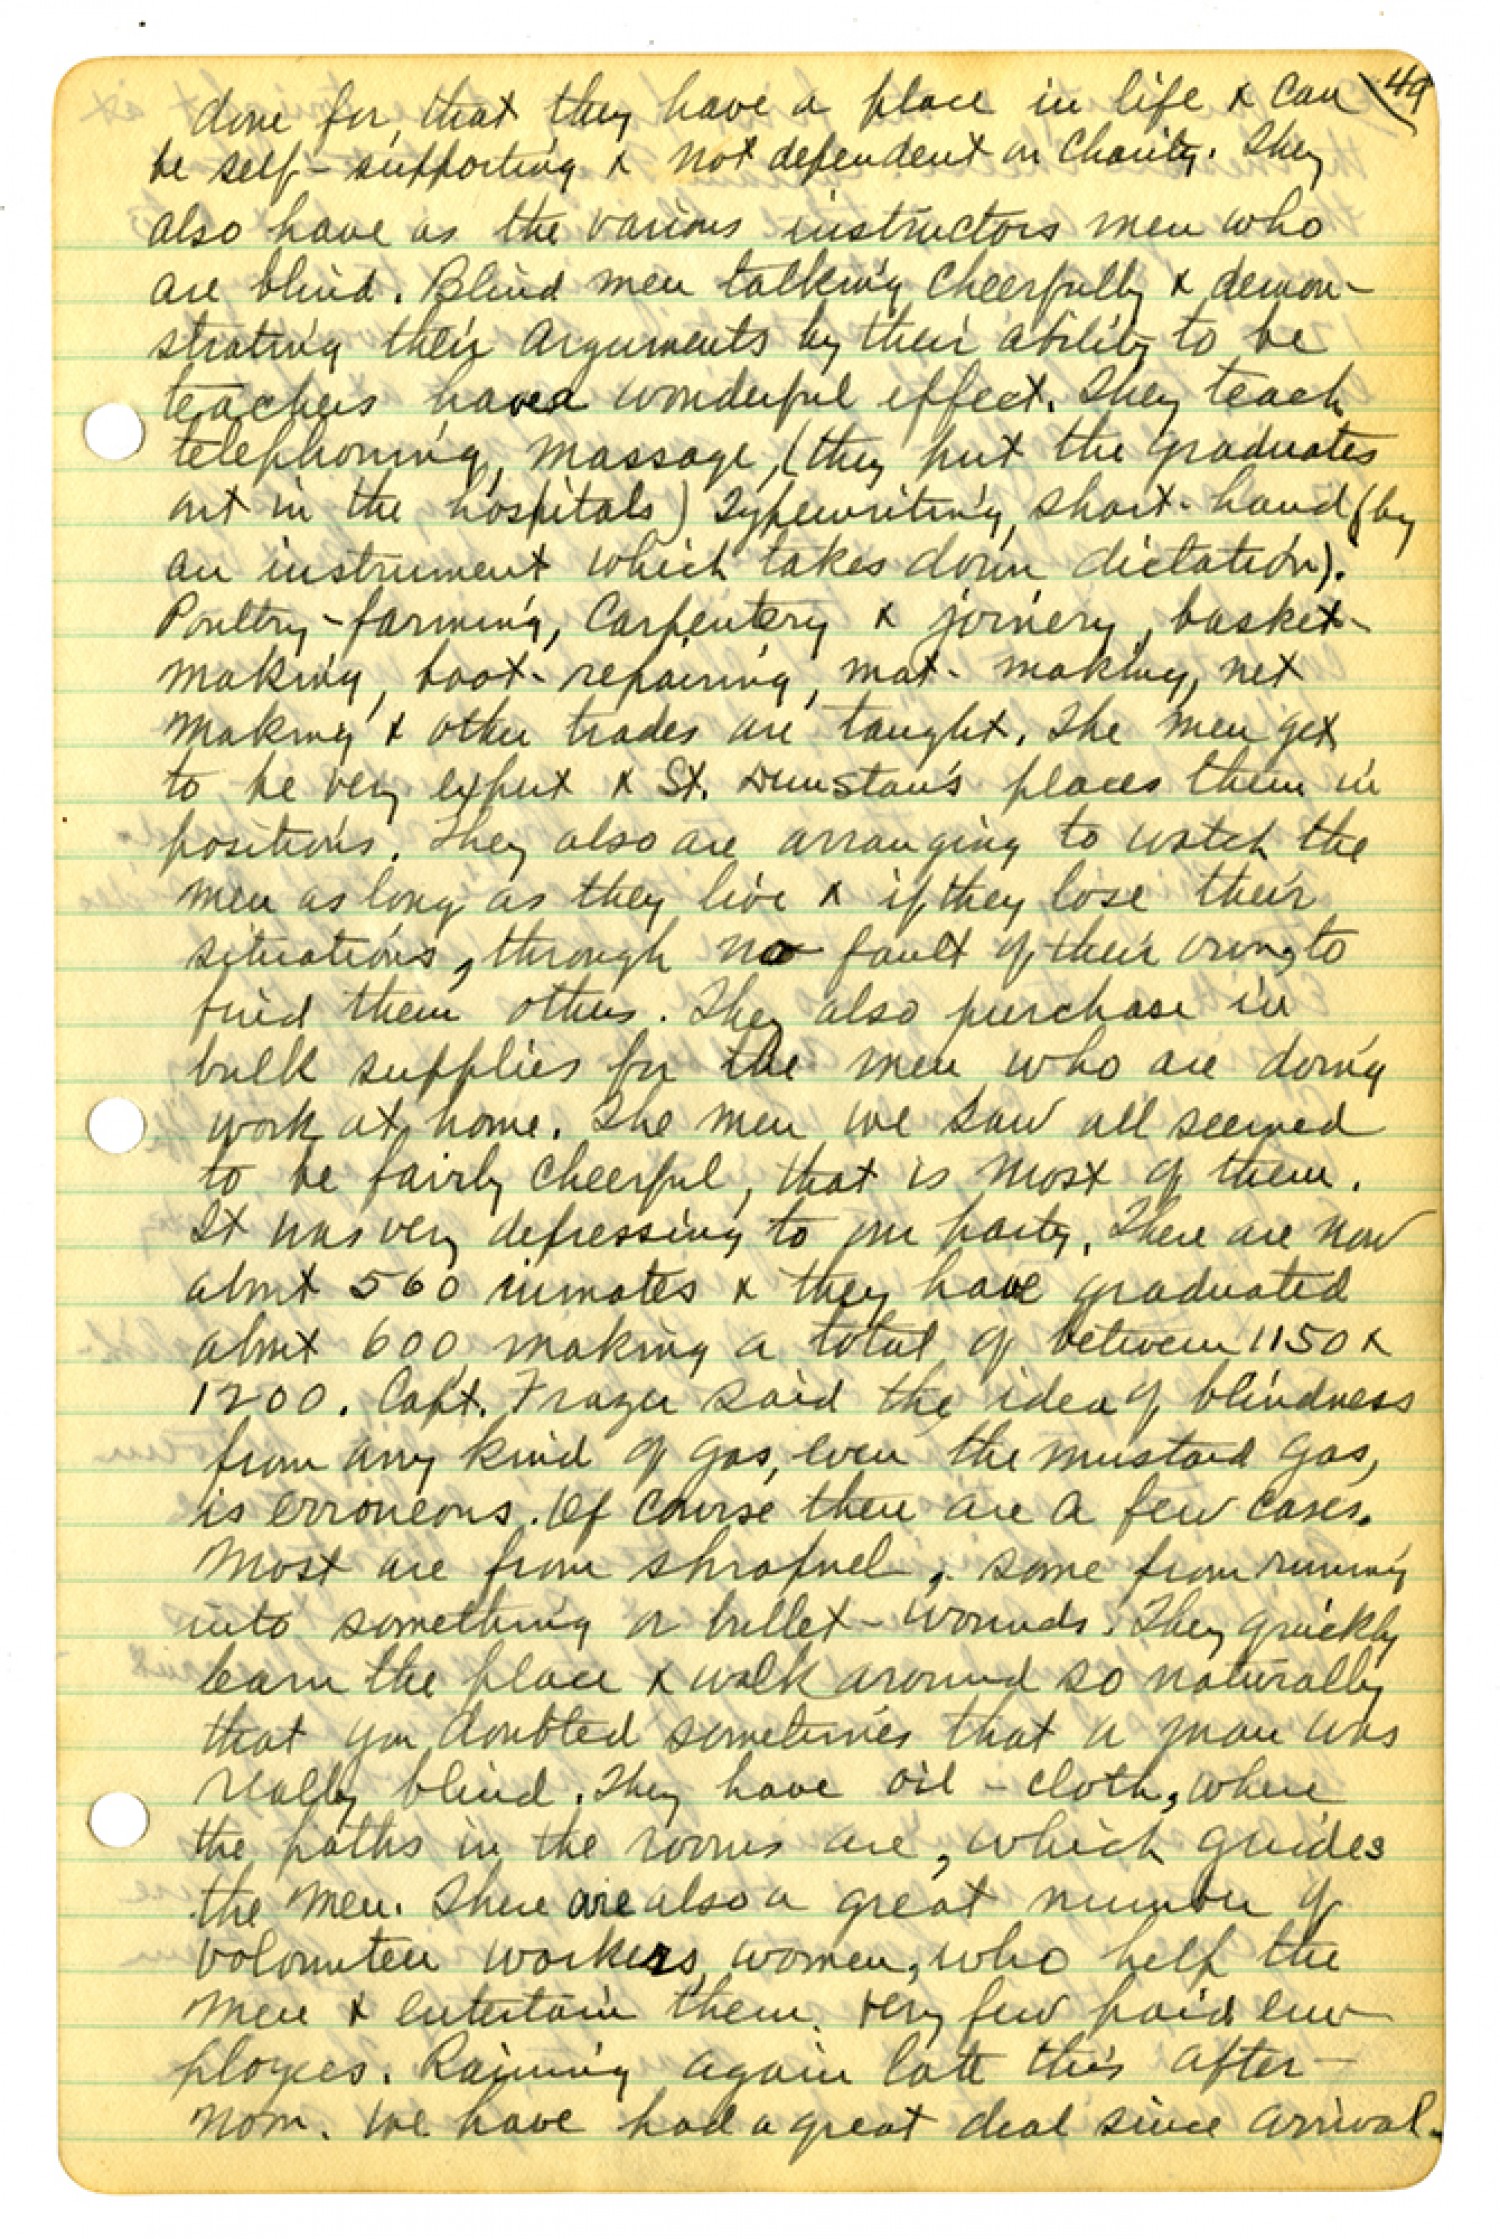 44
done for, that they have a place in life & can
be self-supporting & not dependent on charity. They
also have as the various instructors men who
are blind. Blind men talking cheerfully & demon-
strating their arguments by their ability to be
teachers have a wonderful effect. They teach
telephoning, massage, (they put the graduates
out in the hospitals) Typewriting, short-hand (by
an instrument which takes down dictation).
Poultry-farming, Carpentery & joinery, basket-
making, boot-repairing, mat-making, net
making & other trades are taught. The men get
to be very expert & St. Dunstan's places them in
positions. They also are arranging to watch the
men as long as they live & if they lose their
situations, through no fault of their own, to
find them others. They also purchase in
bulk supplies for the men who are doing
work at home. The men we saw all seemed
to be fairly cheerful, that is most of them.
It was very depressing to our party. There are now
about 560 inmates & they have graduated
about 600 making a total of between 1150 &
1200. Capt. Frazer said the idea of blindness
from any kind of gas, even the mustard gas,
is erroneous. Of course there are a few cases.
Most are from shrapnel, some from running
into something or bullet-wounds. They quickly
learn the place & walk around so naturally
that you doubted sometimes that a man was
really blind. They have oil-cloth, where
the paths in the rooms are, which guides
the men. There are also a great number of
volunteer workers, women, who help the
men & entertain them. Very few paid em-
ployees. Raining again late this after-
noon. We have had a great deal since arrival.